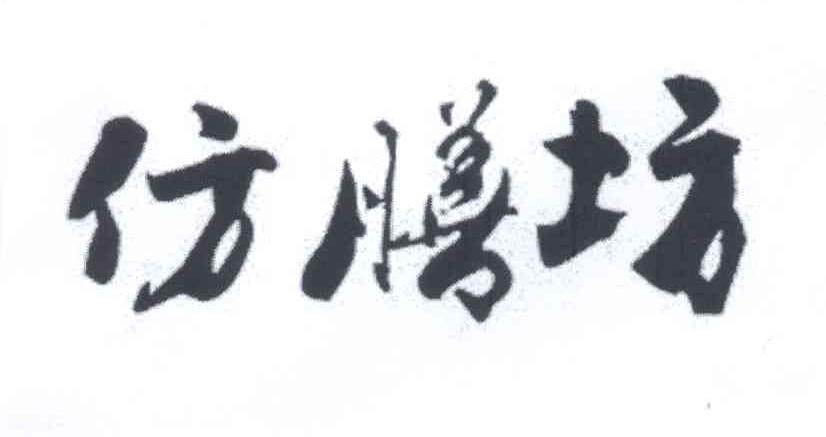 仿膳坊